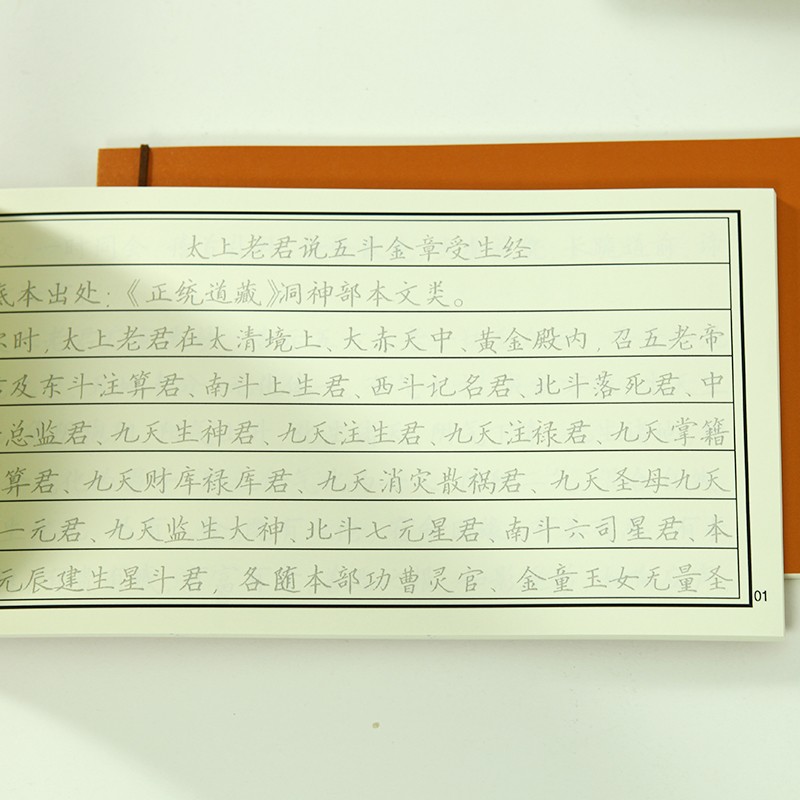 太上老君说五斗金章受生经
底本出处:《正统道藏》洞神部本文类。
尔时,太上老君在太清境上、大赤天中、黄金殿内,召五老帝
及东斗注算君、南斗上生君、西斗记名君、北斗落死君、中
总监君、九天生神君、九天注生君、九天注禄君、九天掌籍
算君、九天财库禄库君、九天消灾散祸君、九天圣母九天
一元君、九天监生大神、北斗七元星君、南斗六司星君、本
元辰建生星斗君,各随本部功曹灵官、金童玉女无量圣
01